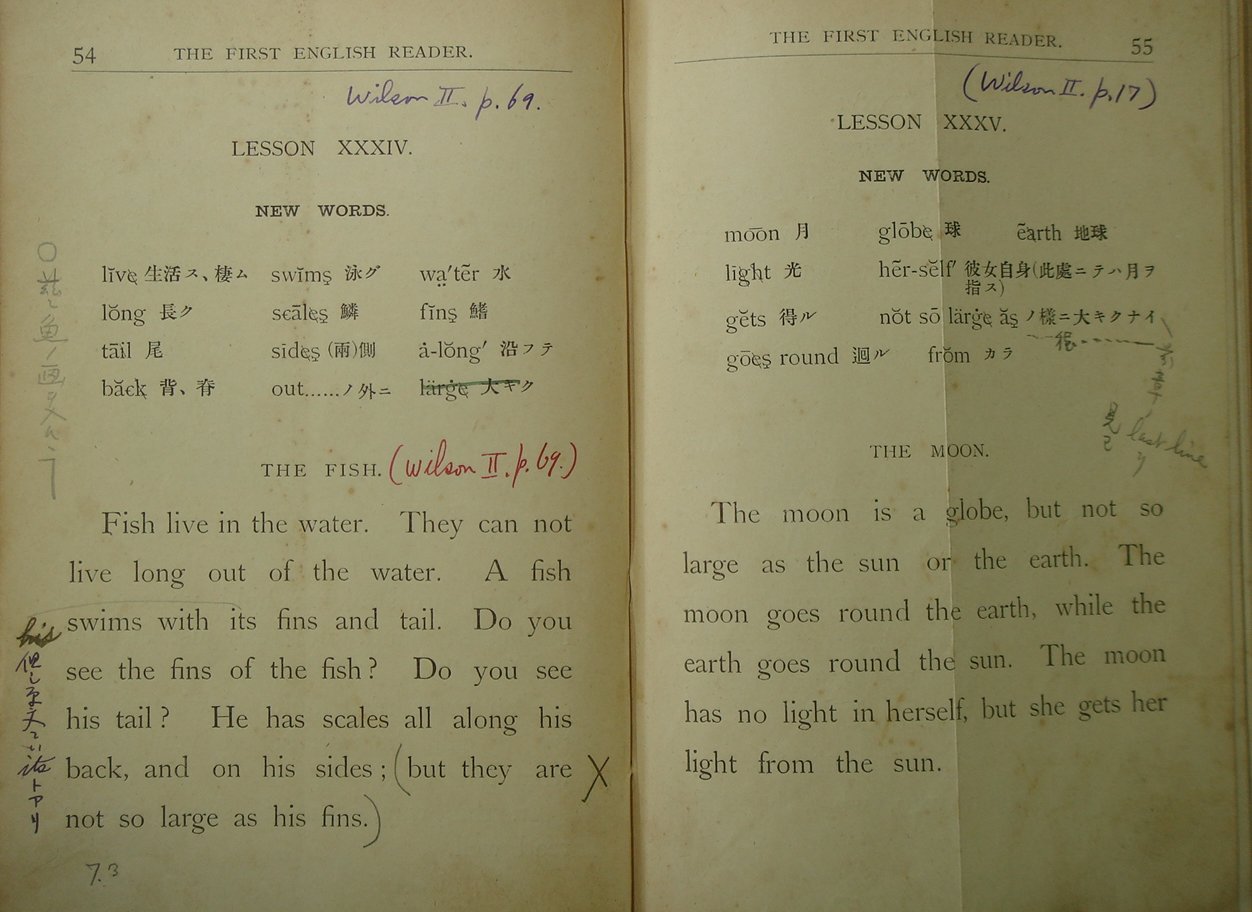 54 THE FIRST ENGLISH READER.
Wilson II. p. 69.
LESSON XXXIV.
NEW WORDS.
līve̱ 生活ス、棲ム swĭmş 泳グ wa̤'tẽr 水
lŏng 長ク sєāle̱ş 鱗 fĭnş 鰭
tāil 尾 sīde̱ş (兩)側 ȧ-lŏng' 沿フテ
băєk 背、脊 out......ノ外ニ lärġe̱ 大キク
THE FISH. (Wilson II. p. 69.)
Fish live in the water. They can not
live long out of the water. A fish
swims with its fins and tail. Do you
see the fins of the fish? Do you see
his tail? He has scales all along his
back, and on his sides; (but they are X
not so large as his fins.)
7.3
魚ノ画ヲ入ル
his
its トアリ
THE FIRST ENGLISH READER. 55
(Wilson II. p. 17)
LESSON XXXV.
NEW WORDS.
mo͞on 月 glōbe̱ 球 ẽarth 地球
līght 光 hẽr-sĕlf' 彼女自身(此處ニテハ月ヲ
指ス)
gĕts 得ル nŏt sō lärġe̱ ăş ノ樣ニ大キクナイ
gōe̱ş round 廻ル frŏm カラ
章
last line
THE MOON.
The moon is a globe, but not so
large as the sun or the earth. The
moon goes round the earth, while the
earth goes round the sun. The moon
has no light in herself, but she gets her
light from the sun.